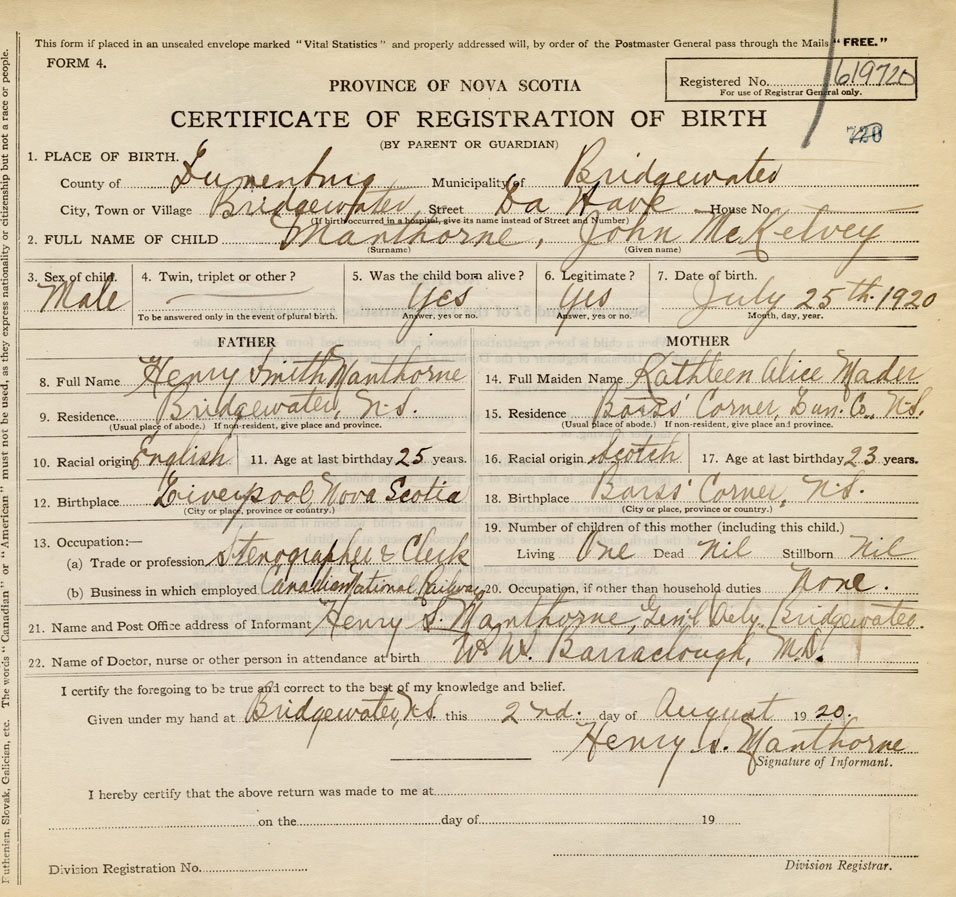 This form if placed in an unsealed envelope marked "Vital Statistics" and properly addressed will, by order of the Postmaster General pass through the Mails "FREE."
FORM 4.
Registered No. 619720
For use of Registrar General only.
PROVINCE OF NOVA SCOTIA
CERTIFICATE OF REGISTRATION OF BIRTH
720
(BY PARENT OR GUARDIAN)
1. PLACE OF BIRTH.
County of Lunenburg Municipality of Bridgewater
City, Town or Village Bridgewater Street La Have House No.
(If birth occurred in a hospital, give its name instead of Street and Number)
2. FULL NAME OF CHILD Manthorne, John McKelvey
(Surname) (Given name)
3. Sex of child. 4. Twin, triplet or other? 5. Was the child born alive? 6. Legitimate? 7. Date of birth.
Male Yes Yes July 25th. 1920
To be answered only in the event of plural birth. Answer, yes or no. Answer, yes or no. Month, day, year.
FATHER MOTHER
8. Full Name Henry Smith Manthorne 14. Full Maiden Name Kathleen Alice Mader
9. Residence. Bridgewater, N.S. 15. Residence Barss' Corner, Lun. Co., N.S.
(Usual place of abode.) If non-resident, give place and province. (Usual place of abode.) If non-resident, give place and province.
10. Racial origin English 11. Age at last birthday 25 years. 16. Racial origin Scotch 17. Age at last birthday 23 years.
12. Birthplace Liverpool Nova Scotia 18. Birthplace Barss' Corner, N.S.
(City or place, province or country.) (City or place, province or country.)
13. Occupation:— 19. Number of children of this mother (including this child.)
(a) Trade or profession Stenographer & Clerk Living One Dead Nil Stillborn Nil
(b) Business in which employed Canadian National Railway 20. Occupation, if other than household duties None.
21. Name and Post Office address of Informant Henry S. Manthorne, Gen'l Dely. Bridgewater.
22. Name of Doctor, nurse or other person in attendance at birth W. W. Barraclough, M.D.
I certify the foregoing to be true and correct to the best of my knowledge and belief.
Given under my hand at Bridgewater, N.S. this 2nd. day of August 1920.
Henry S. Manthorne
Signature of Informant.
I hereby certify that the above return was made to me at
on the day of 19
Division Registration No. Division Registrar.
Ruthenian, Slovak, Galician, etc. The words "Canadian" or "American" must not be used, as they express nationality or citizenship but not a race or people.